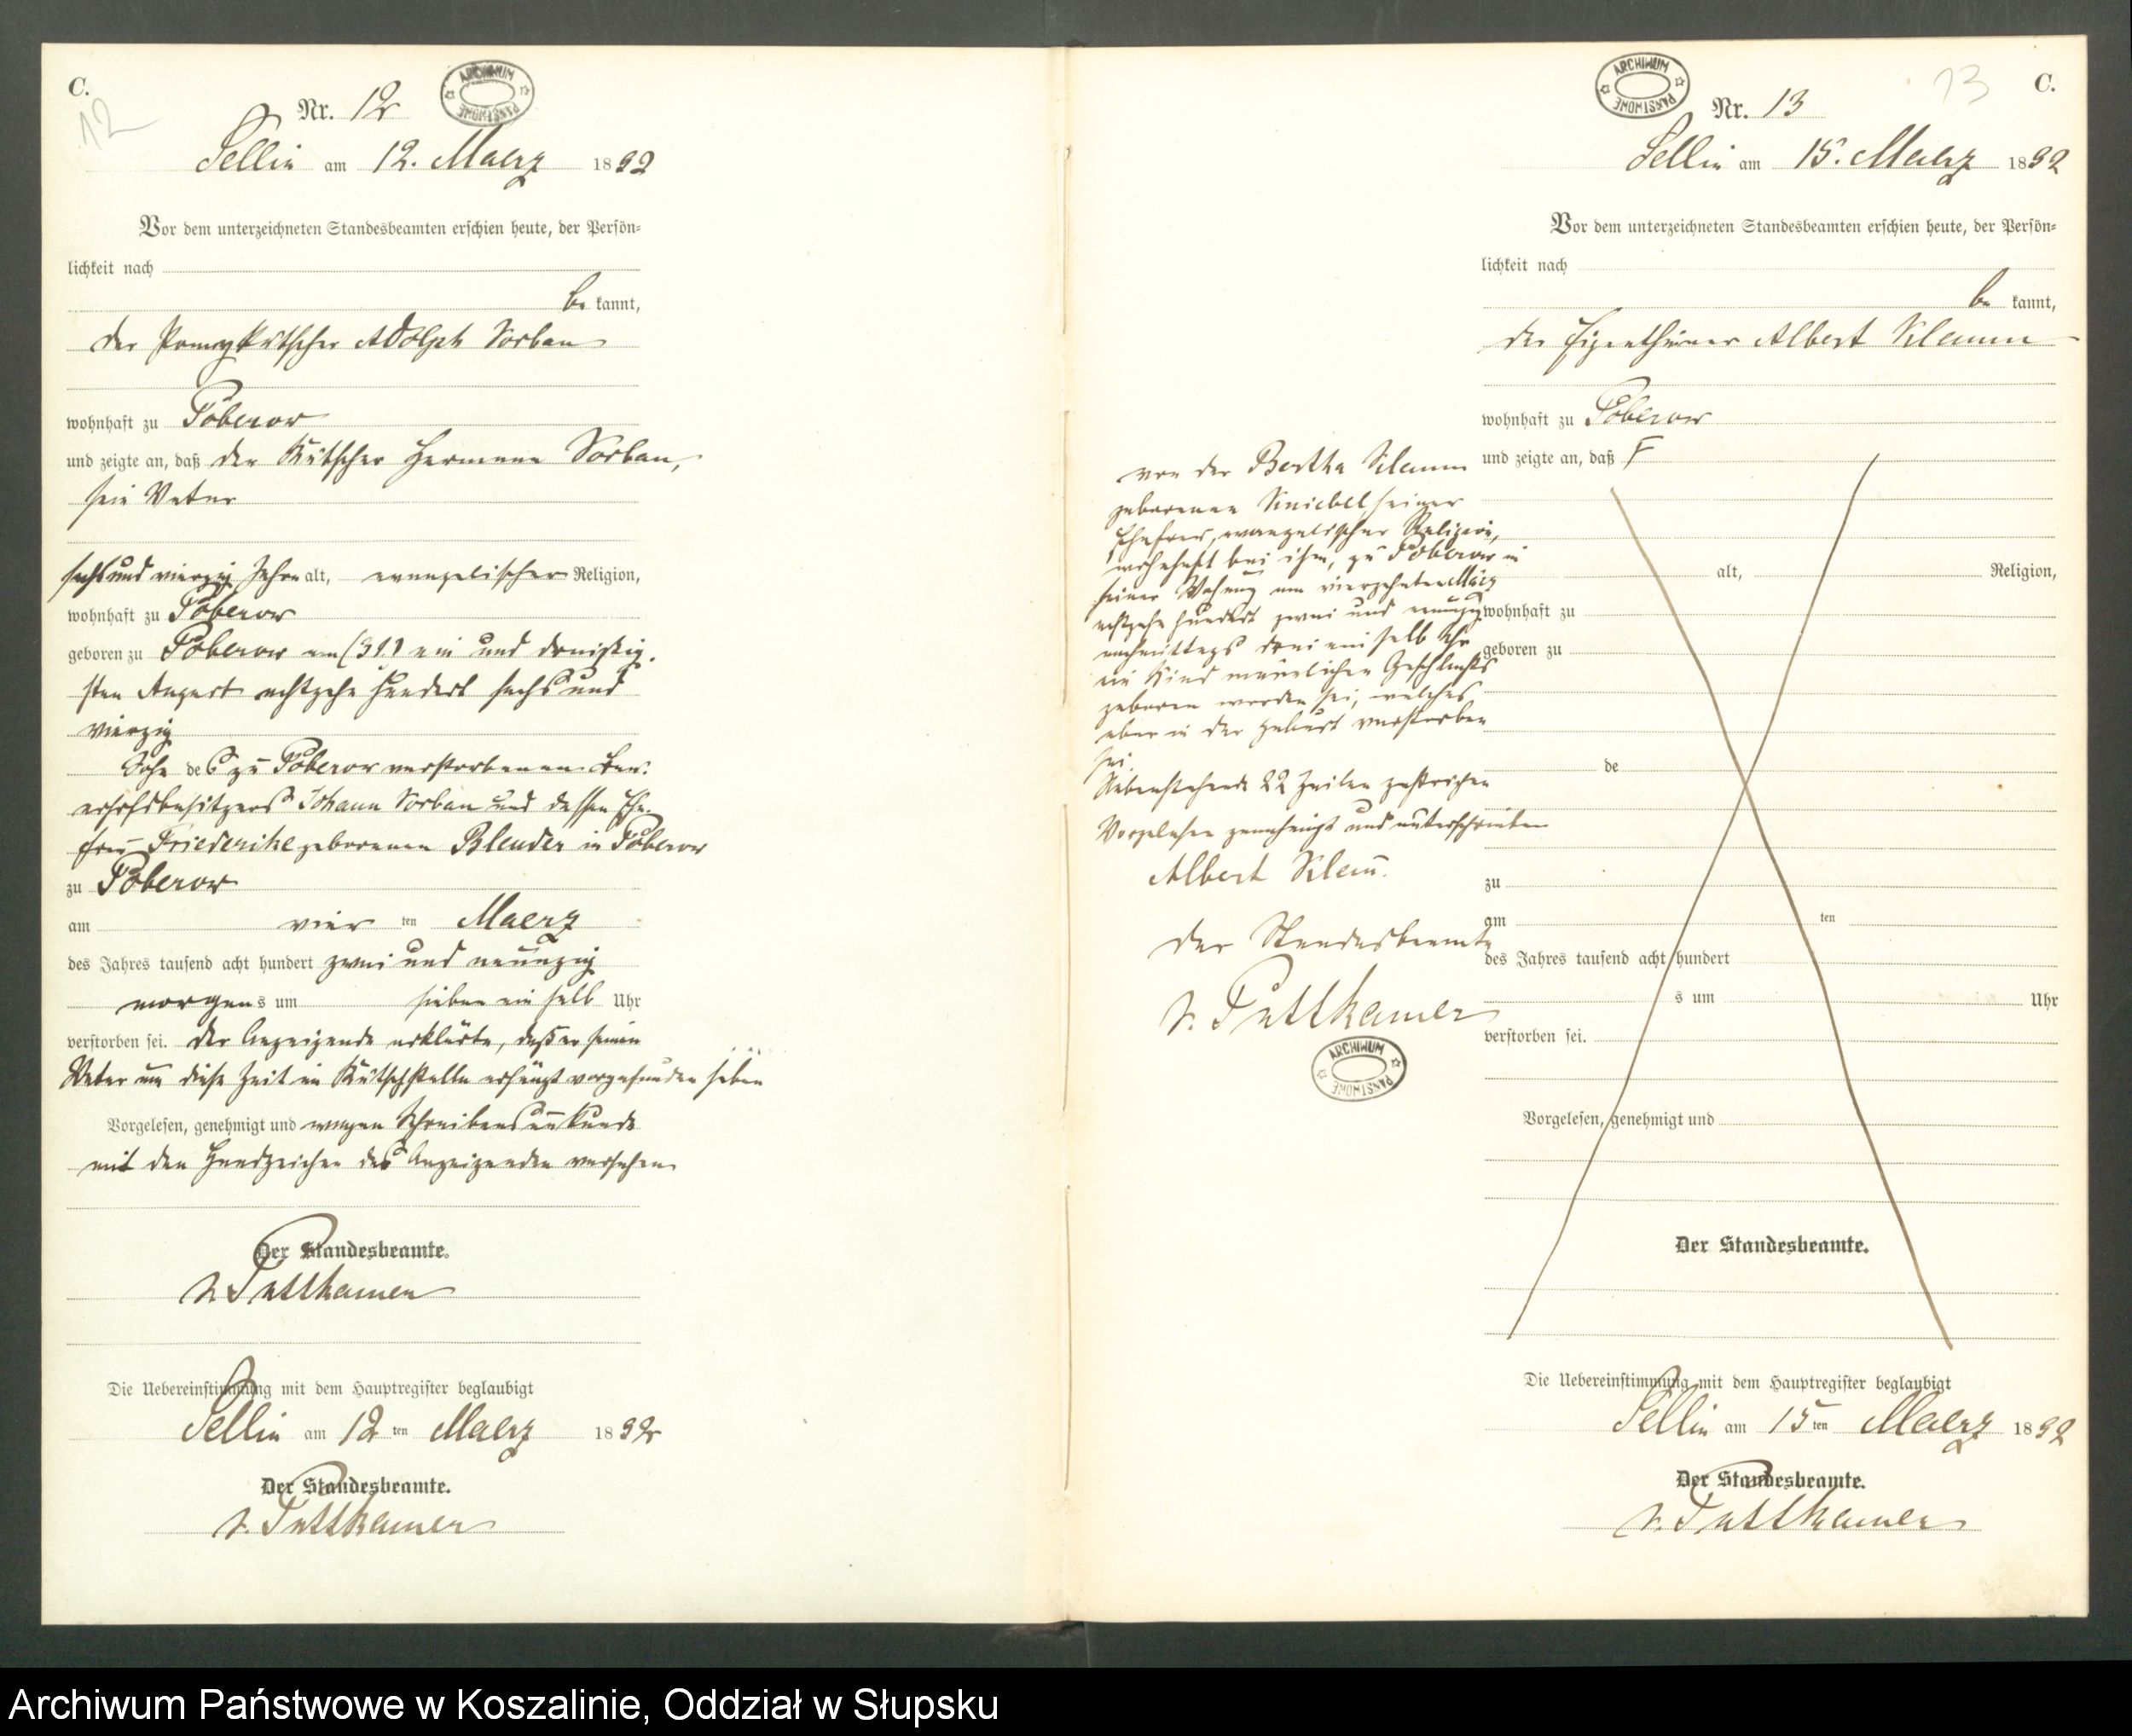 C.
12
Nr. 12
ARCHIWUM PAŃSTWOWE
Sellin am 12. Maerz 1892
Vor dem unterzeichneten Standesbeamten erschien heute, der Persön-
lichkeit nach
be kannt,
der Ponnykutscher Adolph Vorbau
wohnhaft zu Poberow
und zeigte an, daß der Kutscher Hermann Vorbau,
sein Vater
sechs und vierzig Jahre alt, evangelischer Religion,
wohnhaft zu Poberow
geboren zu Poberow am (31) ein und dreißig-
sten August achtzehn hundert sechs und
vierzig
Sohn des zu Poberow verstorbenen Bau-
erhofsbesitzers Johann Vorbau und dessen Ehe-
frau Friederike geborenen Blender in Poberow
zu Poberow
am vier ten Maerz
des Jahres tausend acht hundert zwei und neunzig
morgens um sieben ein halb Uhr
verstorben sei. Der Anzeigende erklärte, daß er seinen
Vater um diese Zeit im Kutschstalle erhängt vorgefunden habe
Vorgelesen, genehmigt und wegen Schreibensunkunde
mit den Handzeichen des Anzeigenden versehen
Der Standesbeamte.
v. Puttkamer
Die Uebereinstimmung mit dem Hauptregister beglaubigt
Sellin am 12 ten Maerz 1892
Der Standesbeamte.
v. Puttkamer
C.
13
ARCHIWUM PAŃSTWOWE
Nr. 13
Sellin am 15. Maerz 1892
Vor dem unterzeichneten Standesbeamten erschien heute, der Persön-
lichkeit nach
be kannt,
der Eigenthümer Albert Klamm
wohnhaft zu Poberow
und zeigte an, daß
von der Bertha Klamm
geborenen Kniebel seiner
Ehefrau, evangelischer Religion,
wohnhaft bei ihm, zu Poberow in
seiner Wohnung am vierzehnten März
achtzehn hundert zwei und neunzig
nachmittags drei ein halb Uhr
ein Kind männlichen Geschlechts
geboren worden sei, welches
aber in der Geburt verstorben
sei.
Nebenstehende 22 Zeilen gestrichen
Vorgelesen genehmigt und unterschrieben
Albert Klam̄.
Der Standesbeamte
v. Puttkamer
ARCHIWUM PAŃSTWOWE
alt, Religion,
wohnhaft zu
geboren zu
de
zu
am ten
des Jahres tausend acht hundert
s um Uhr
verstorben sei.
Vorgelesen, genehmigt und
Der Standesbeamte.
Die Uebereinstimmung mit dem Hauptregister beglaubigt
Sellin am 15 ten Maerz 1892
Der Standesbeamte.
v. Puttkamer
Archiwum Państwowe w Koszalinie, Oddział w Słupsku